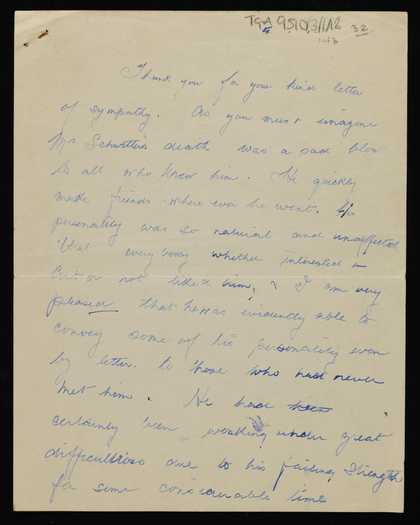 TGA 9510/3/1/12 32
1 of 3
Thank you for your kind letter
of sympathy. As you must imagine
Mr Schwitters death was a sad blow
to all who knew him. He quickly
made friends where ever he went. His
personality was so natural and unaffected
that everybody whether interested in
Art or not liked him, & I am very
pleased that he was evidently able to
convey some of his personality even
by letter to those who had never
met him. He had
certainly been working under great
difficulties due to his failing strength
for some considerable time